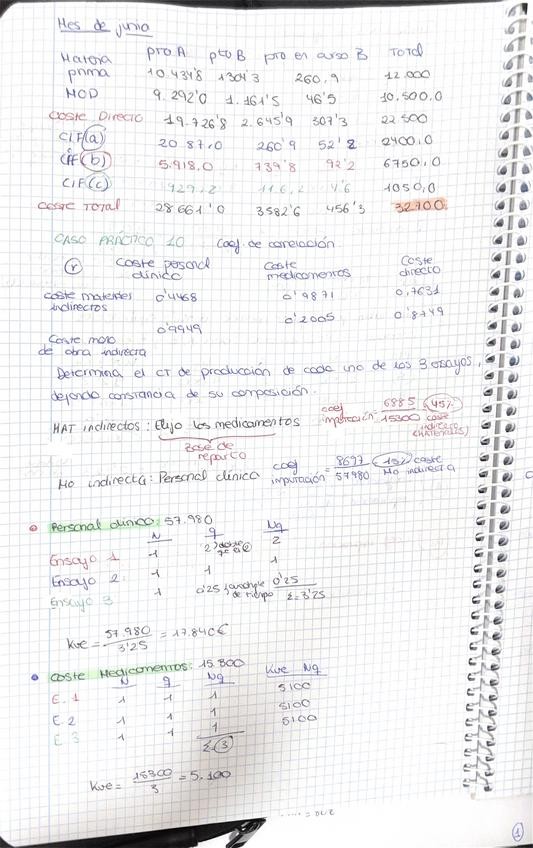 Mes de junio
pto A pto B pto en curso B Total
Materia prima 10.434'8 1304'3 260,9 12.000
MOD 9.292'0 1.161'5 46'5 10.500,0
Coste Directo 19.726'8 2.645'9 307'3 22 500
CIF (a) 20 87,0 260'9 52'2 2400,0
CIF (b) 5.918,0 739'8 92'2 6750,0
CIF (c) 929,2 116,2 4'6 1050,0
Coste Total 28 661'0 3582'6 456'3 32.700
CASO PRÁCTICO 10 Coef. de correlación.
(r) Coste personal clínico Coste medicamentos Coste directo
coste materiales indirectos 0'4468 0'9871 0,7631
Coste mano de obra indirecta 0'9949 0'2005 0'8749
Determina el CT de producción de cada uno de los 3 ensayos,
dejando constancia de su composición.
MAT indirectos: Elijo los medicamentos coef imputación = 6885 / 15300 45% coste indirecto (MATERIALES)
Base de reparto
Mo indirecta: Personal clínico coef imputación = 8697 / 57980 15% coste Mo indirecta
Personal clínico: 57.980
N q Nq
Ensayo 1 1 2 doble que el 2 2
Ensayo 2 1 1 1
Ensayo 3 1 0'25 de tiempo 0'25
Σ = 3'25
Kue = 57.980 / 3'25 = 17.840€
Coste Medicamentos: 15.300
N q Nq Kue Nq
E. 1 1 1 1 5100
E. 2 1 1 1 5100
E. 3 1 1 1 5100
Σ 3
Kue = 15300 / 3 = 5.100
1